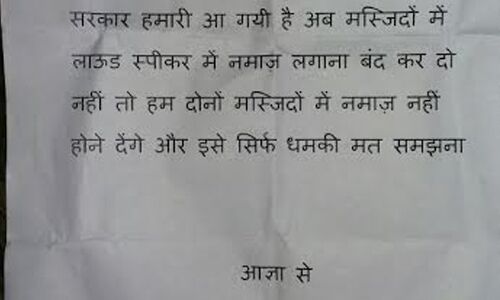 सरकार हमारी आ गयी है अब मस्जिदों में
लाऊड स्पीकर में नमाज़ लगाना बंद कर दो
नहीं तो हम दोनों मस्जिदों में नमाज़ नहीं
होने देंगे और इसे सिर्फ धमकी मत समझना
आज्ञा से